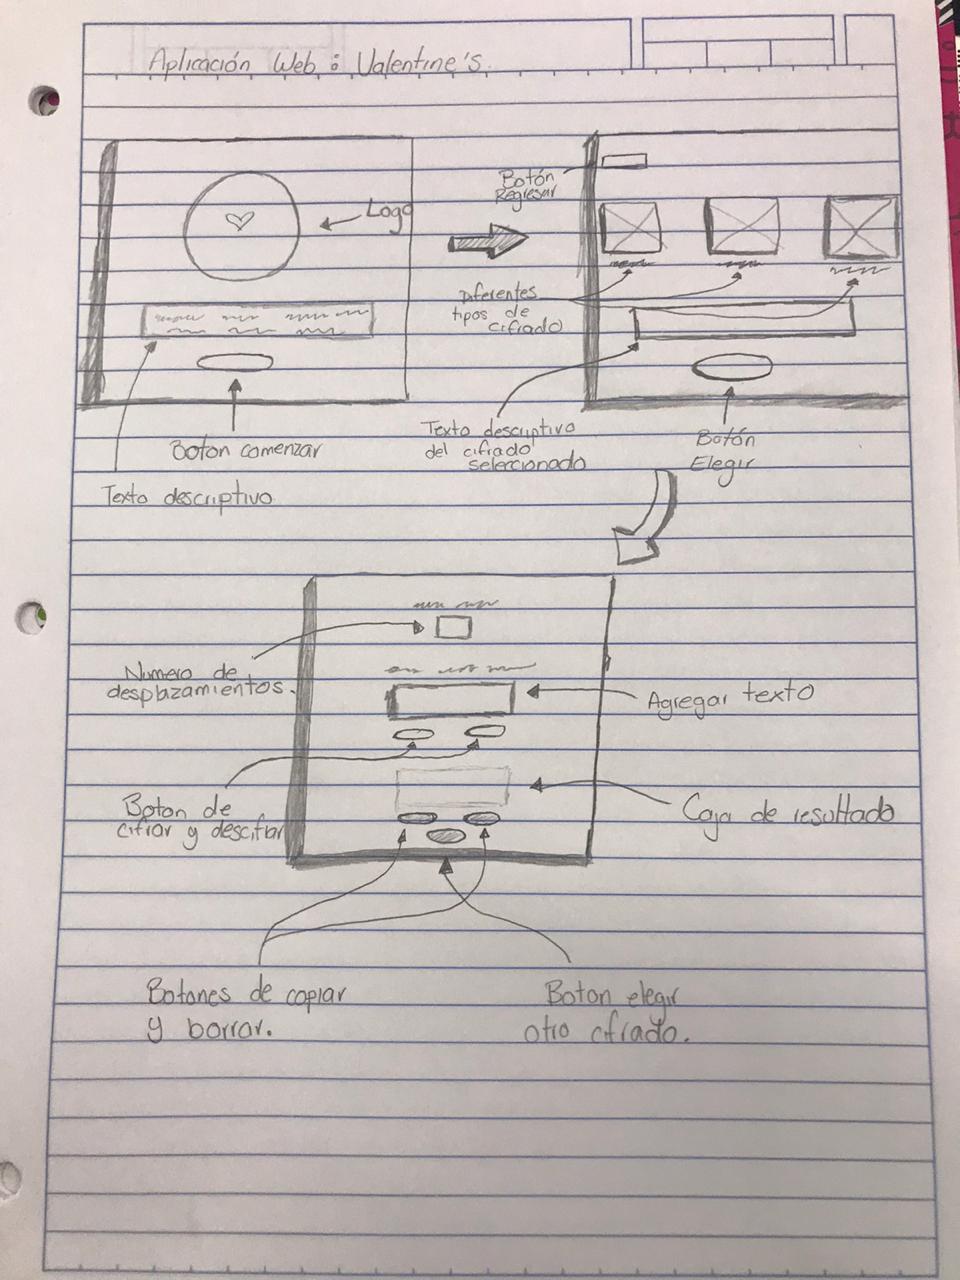 Aplicación Web : Valentine's.
Logo
Botón
Regresar
Diferentes
tipos de
cifrado
Boton comenzar
Texto descriptivo
Texto descriptivo
del cifrado
seleccionado
Botón
Elegir
Numero de
desplazamientos.
Agregar texto
Boton de
cifrar y descifrar
Caja de resultado
Botones de copiar
y borrar.
Boton elegir
otro cifrado.